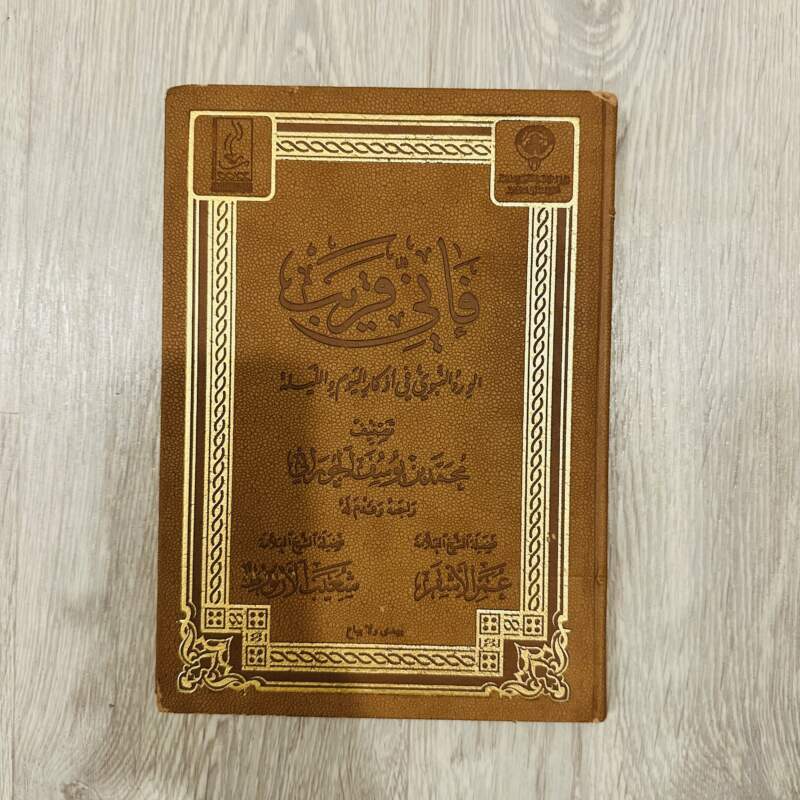 فَإِنِّي قَرِيبٌ
الورد النبوي في أذكار اليوم والليلة
تصنيف
محمد بن يوسف الجوراني
راجعه وقدم له
فضيلة الشيخ العلامة
عمر الأشقر
فضيلة الشيخ العلامة
شعيب الأرنؤوط
يهدى ولا يباع